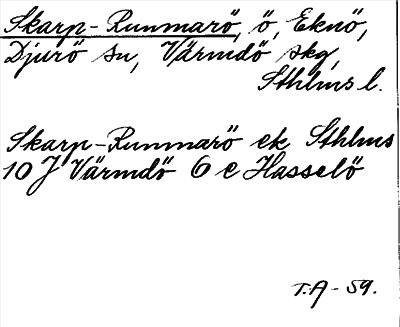 Skarp-Runmarö, ö, Eknö,
Djurö sn, Värmdö skg,
Sthlms l.
Skarp-Runmarö ek Sthlms
10 J Värmdö 6 e Hasselö
T.A - 59.